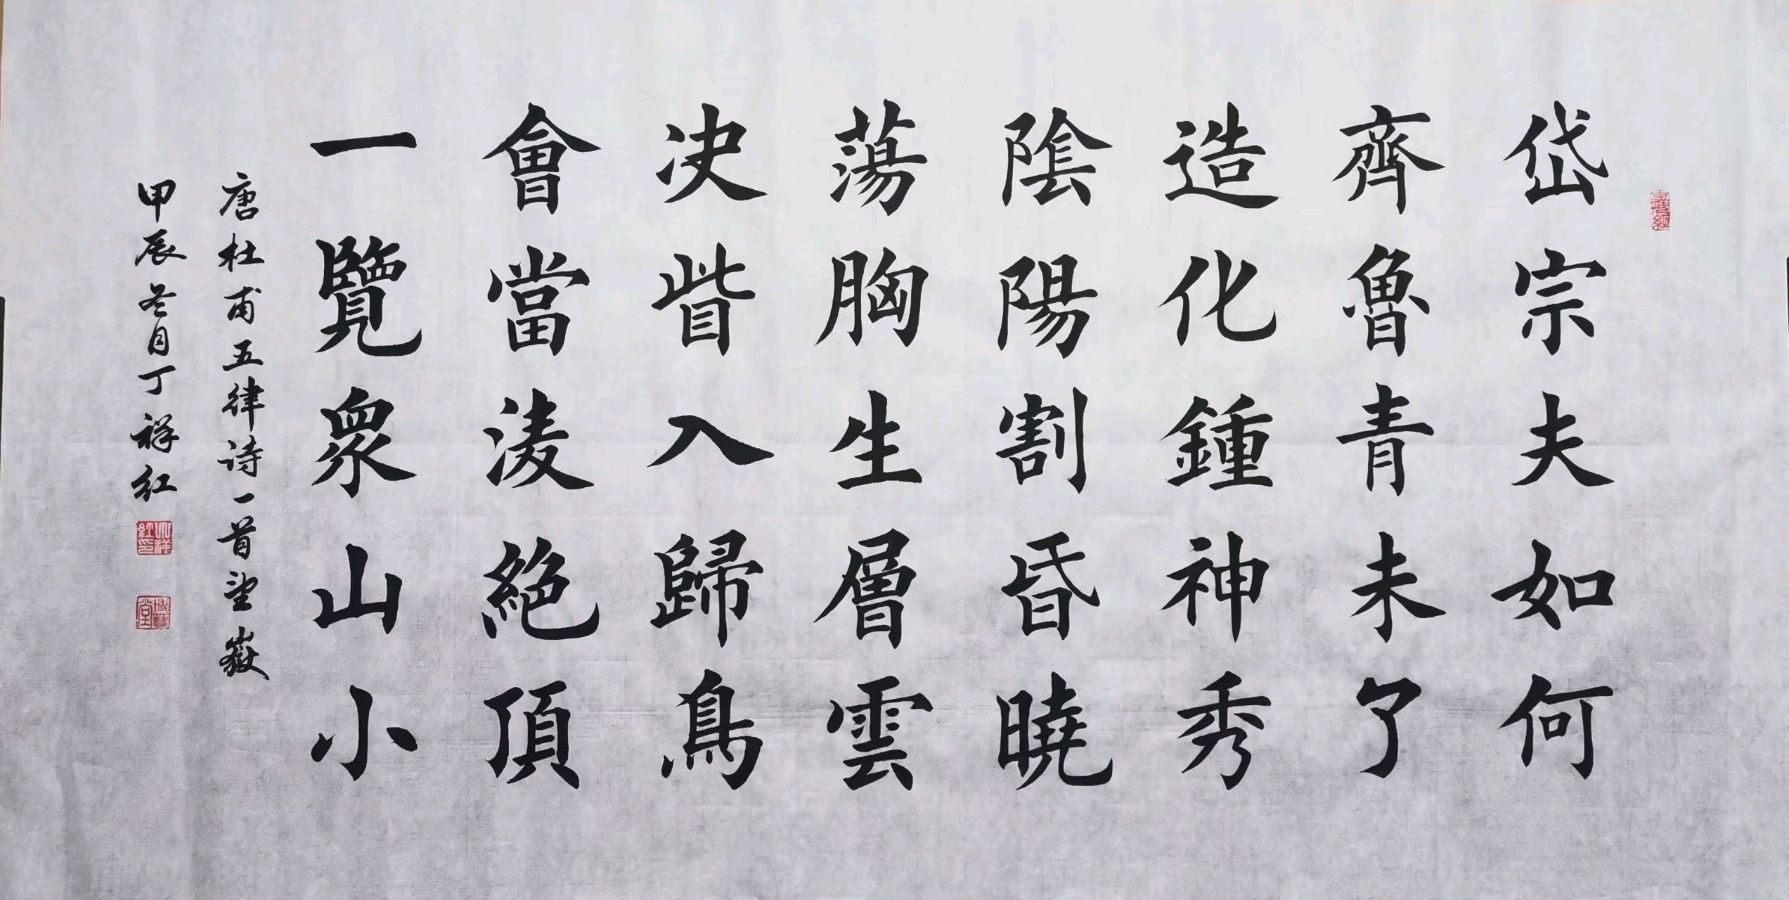 岱宗夫如何
齊魯青未了
造化鍾神秀
陰陽割昏曉
蕩胸生層雲
决眥入歸鳥
會當淩絕頂
一覽衆山小
唐杜甫五律诗一首望嶽
甲辰冬月丁祥红